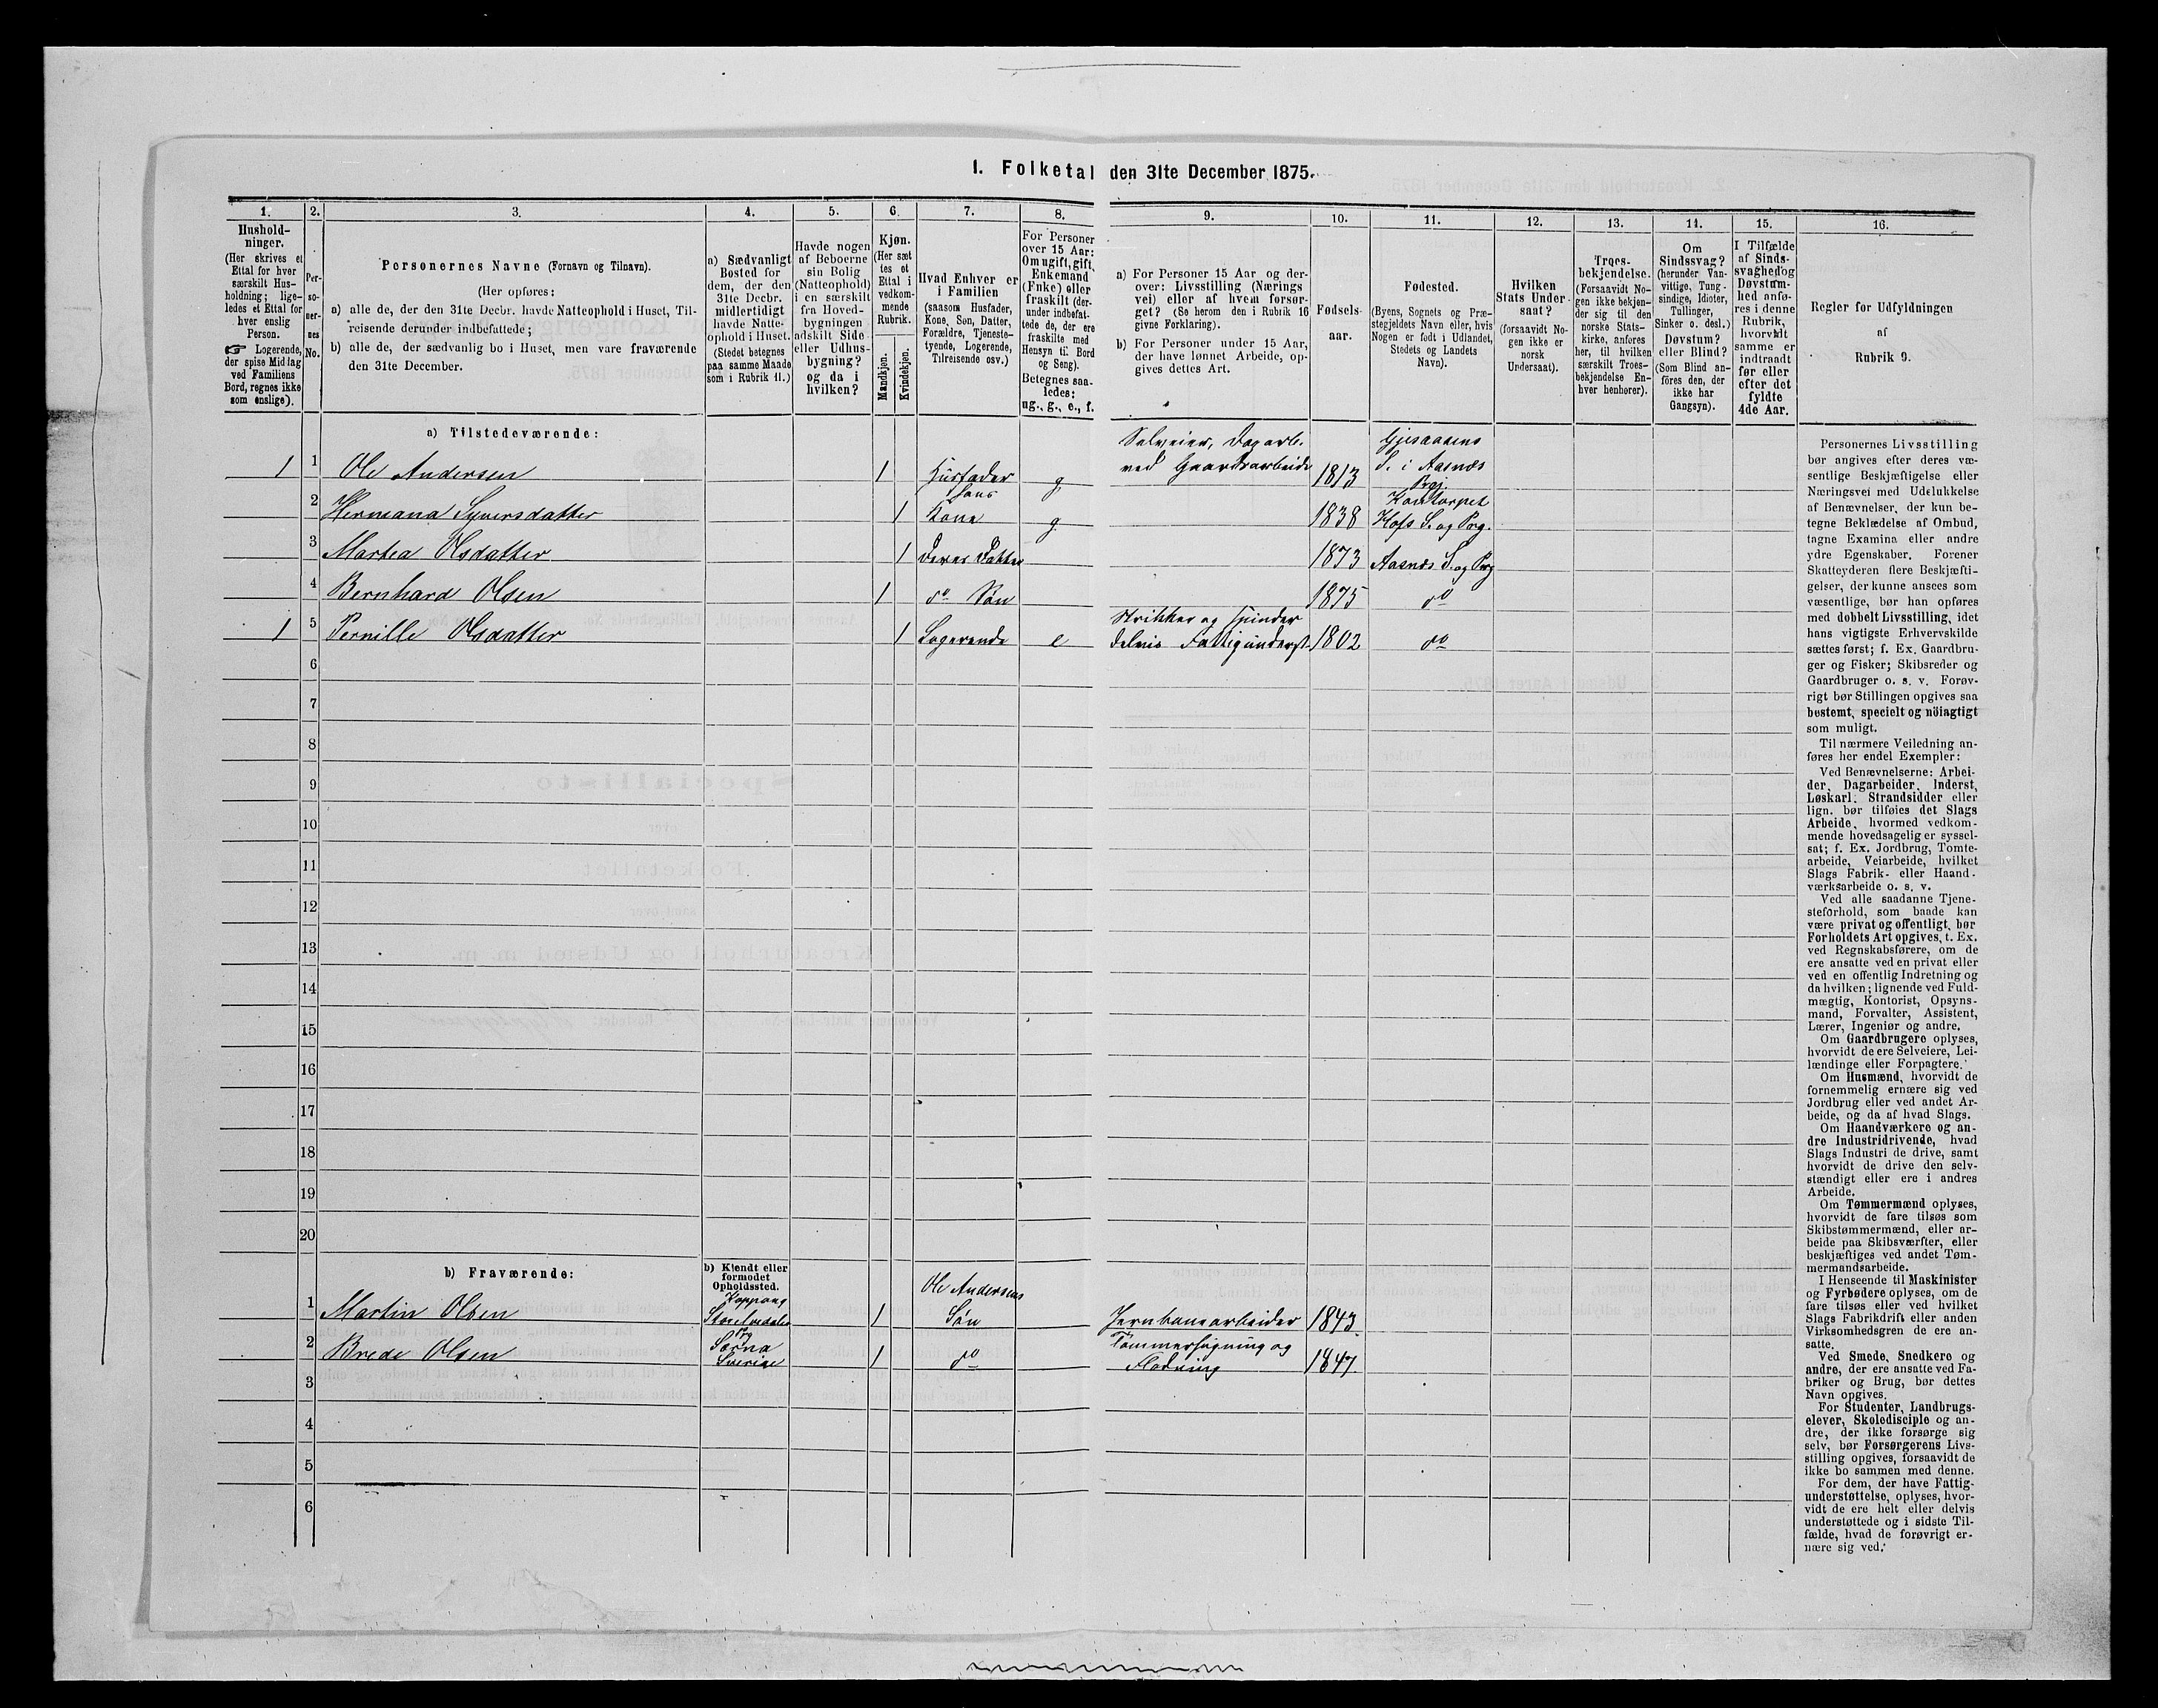 1. Folketal den 31te December 1875.
1.
2.
3.
4.
5.
6.
7.
8.
9.
10.
11.
12.
13.
14.
15.
16.
Hushold-
ninger.
(Her skrives et
Ettal for hver
særskilt Hus-
holdning; lige-
ledes et Ettal for
hver enslig
Person.
☞ Logerende,
der spise Middag
ved Familiens
Bord, regnes ikke
som enslige).
Per-
so-
ner-
nes
No.
Personernes Navne (Fornavn og Tilnavn).
(Her opføres:
a) alle de, der den 31te Decbr. havde Natteophold i Huset, Til-
reisende derunder indbefattede;
b) alle de, der sædvanlig bo i Huset, men vare fraværende
den 31te December.
a) Sædvanligt
Bosted for
dem, der den
31te Decbr.
midlertidigt
havde Natte-
ophold i Huset.
(Stedet betegnes
paa samme Maade
som i Rubrik 11.)
Havde nogen
af Beboerne
sin Bolig
(Natteophold)
i en særskilt
fra Hoved-
bygningen
adskilt Side-
eller Udhus-
bygning?
og da i
hvilken?
Kjøn.
(Her sæt-
tes et
Ettal i
vedkom-
mende
Rubrik.
Mandkjøn.
Kvindekjøn.
Hvad Enhver er
i Familien
(saasom Husfader,
Kone, Søn, Datter,
Forældre, Tjeneste-
tyende, Logerende,
Tilreisende osv.)
For Personer
over 15 Aar:
Om ugift, gift,
Enkemand
(Enke) eller
fraskilt (der-
under indbefat-
tede de, der ere
fraskilte med
Hensyn til Bord
og Seng).
Betegnes saa-
ledes:
ug., g., e., f.
a) For Personer 15 Aar og der-
over: Livsstilling (Nærings-
vei) eller af hvem forsør-
get? (Se herom den i Rubrik 16
givne Forklaring).
b) For Personer under 15 Aar,
der have lønnet Arbeide, op-
gives dettes Art.
Fødsels-
aar.
Fødested.
(Byens, Sognets og Præ-
stegjeldets Navn eller, hvis
Nogen er født i Udlandet,
Stedets og Landets
Navn).
Hvilken
Stats Under-
saat?
(forsaavidt No-
gen ikke er
norsk
Undersaat).
Troes-
bekjendelse.
(Forsaavidt No-
gen ikke bekjen-
der sig til den
norske Stats-
kirke, anføres
her, til hvilken
særskilt Troes-
bekjendelse En-
hver henhører).
Om
Sindssvag?
(herunder Van-
vittige, Tung-
sindige, Idioter,
Tullinger,
Sinker o. desl.)
Døvstum?
eller Blind?
(Som Blind an-
føres den, der
ikke har
Gangsyn).
I Tilfælde
af Sinds-
svaghed og
Døvstum-
hed anfø-
res i denne
Rubrik,
hvorvidt
samme er
indtraadt
før eller
efter det
fyldte
4de Aar.
Regler for Udfyldningen
af
Rubrik 9.
a) Tilstedeværende:
1 1 Ole Andersen 1 Husfader g Selveier, Dagarb. ved Gaardsarbeide 1813 Gjesaasens S. i Aasnæs Prgj.
2 Hermana Syversdatter 1 hans Kone g 1838 Kontorpet Hofs S. og Prg.
3 Martea Olsdatter 1 Deres Datter 1873 Aasnæs S. og Prg
4 Bernhard Olsen 1 do Søn 1875 do
1 5 Pernille Olsdatter 1 Logerende e Strikker og spinder delvis Fattigunderst. 1802 do
6
7
8
9
10
11
12
13
14
15
16
17
18
19
20
b) Fraværende:
b) Kjendt eller
formodet
Opholdssted.
1 Martin Olsen Koppang Storelvedalen Prg 1 Ole Andersens Søn Jernbanearbeider 1843.
2 Brede Olsen Særna Sverige 1 do Tømmerhugning og Flødning 1847.
3
4
5
6
Personernes Livsstilling
bør angives efter deres væ-
sentlige Beskjæftigelse eller
Næringsvei med Udelukkelse
af Benævnelser, der kun be-
tegne Beklædelse af Ombud,
tagne Examina eller andre
ydre Egenskaber. Forener
Skatteyderen flere Beskjæfti-
gelser, der kunne ansees som
væsentlige, bør han opføres
med dobbelt Livsstilling, idet
hans vigtigste Erhvervskilde
sættes først; f. Ex. Gaardbru-
ger og Fisker; Skibsreder og
Gaardbruger o. s. v. Forøv-
rigt bør Stillingen opgives saa
bestemt, specielt og nöiagtigt
som muligt.
Til nærmere Veiledning an-
føres her endel Exempler:
Ved Benævnelserne: Arbei-
der, Dagarbeider, Inderst,
Løskarl, Strandsidder eller
lign. bør tilføies det Slags
Arbeide, hvormed vedkom-
mende hovedsagelig er syssel-
sat; f. Ex. Jordbrug, Tomte-
arbeide, Veiarbeide, hvilket
Slags Fabrik- eller Haand-
værksarbeide o. s. v.
Ved alle saadanne Tjene-
steforhold, som baade kan
være privat og offentligt, bør
Forholdets Art opgives, t. Ex.
ved Regnskabsførere, om de
ere ansatte ved en privat eller
ved en offentlig Indretning og
da hvilken; lignende ved Fuld-
mægtig, Kontorist, Opsyns-
mand, Forvalter, Assistent,
Lærer, Ingeniør og andre.
Om Gaardbrugere oplyses,
hvorvidt de ere Selveiere, Lei-
lændinge eller Forpagtere.
Om Husmænd, hvorvidt de
fornemmelig ernære sig ved
Jordbrug eller ved andet Ar-
beide, og da af hvad Slags.
Om Haandværkere og an-
dre Industridrivende, hvad
Slags Industri de drive, samt
hvorvidt de drive den selv-
stændigt eller ere i andres
Arbeide.
Om Tømmermænd oplyses,
hvorvidt de fare tilsøs som
Skibstømmermænd, eller ar-
beide paa Skibsværfter, eller
beskjæftiges ved andet Tøm-
mermandsarbeide.
I Henseende til Maskinister
og Fyrbødere oplyses, om de
fare tilsøs eller ved hvilket
Slags Fabrikdrift eller anden
Virksomhedsgren de ere an-
satte.
Ved Smede, Snedkere og
andre, der ere ansatte ved Fa-
briker og Brug, bør dettes
Navn opgives.
For Studenter, Landbrugs-
elever, Skoledisciple og an-
dre, der ikke forsørge sig
selv, bør Forsørgerens Livs-
stilling opgives, forsaavidt de
ikke bo sammen med denne.
For dem, der have Fattig-
understøttelse, oplyses, hvor-
vidt de ere helt eller delvis
understøttede og i sidste Til-
fælde, hvad de forøvrigt er-
nære sig ved.